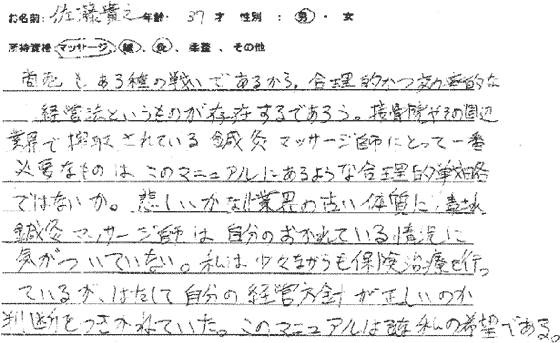 お名前: 佐藤貴之 年齢・ 37 才 性別 : 男 ・ 女
所持資格 マッサージ、鍼、灸、柔整、その他
商売もある種の戦いであるから、合理的かつ効率的な
経営法というものが存在するであろう。接骨院やその周辺
業界で搾取されている鍼灸マッサージ師にとって一番
必要なものは、このマニュアルにあるような合理的戦略
ではないか。悲しいかな業界の古い体質に毒され
鍼灸マッサージ師は自分のおかれている情況に
気がついていない。私は少々ながらも保険治療を行っ
ているが、はたして自分の経営方針が正しいのか
判断をつきかねていた。このマニュアルは 私の希望である。